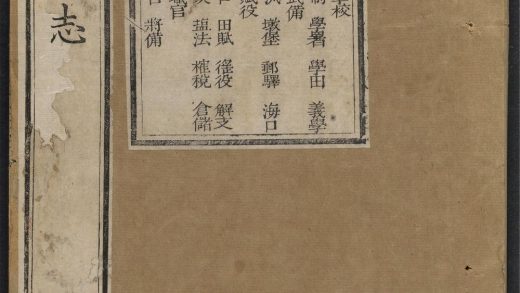 校
學署 學田 義學
武備
墩堡 郵驛 海口
役
田賦 徭役 解支
鹽法 榷稅 倉儲
官
將備
志